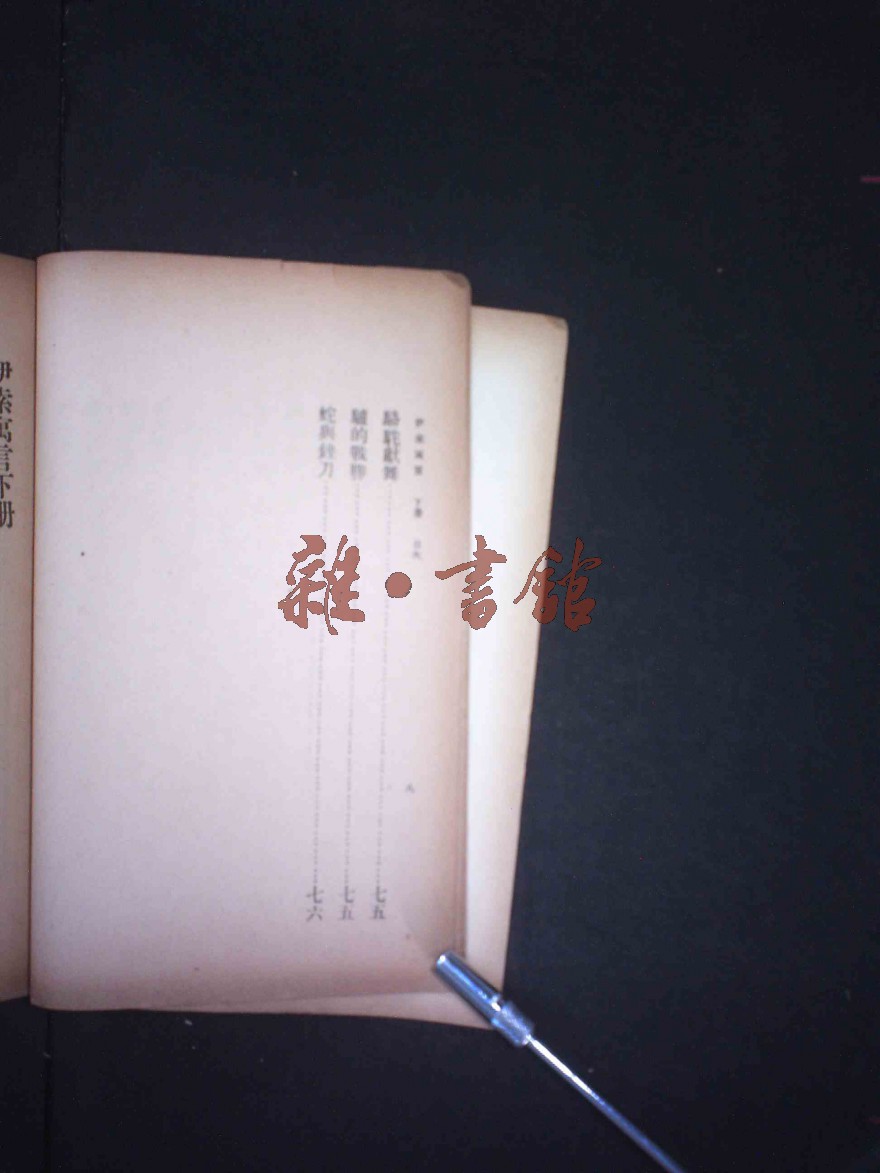 伊索寓言 下冊 目次
駱駝獻舞……七五
驢的戰勝……七五
蛇與銼刀……七六
八
伊索寓言下册
雜•書館